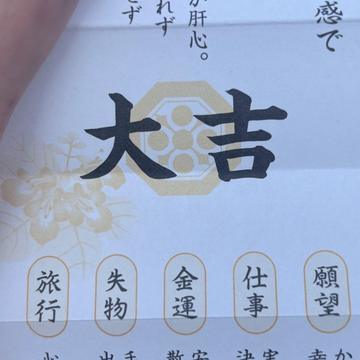 感で
が肝心。
れず
とず
大吉
願望
仕事
金運
失物
旅行